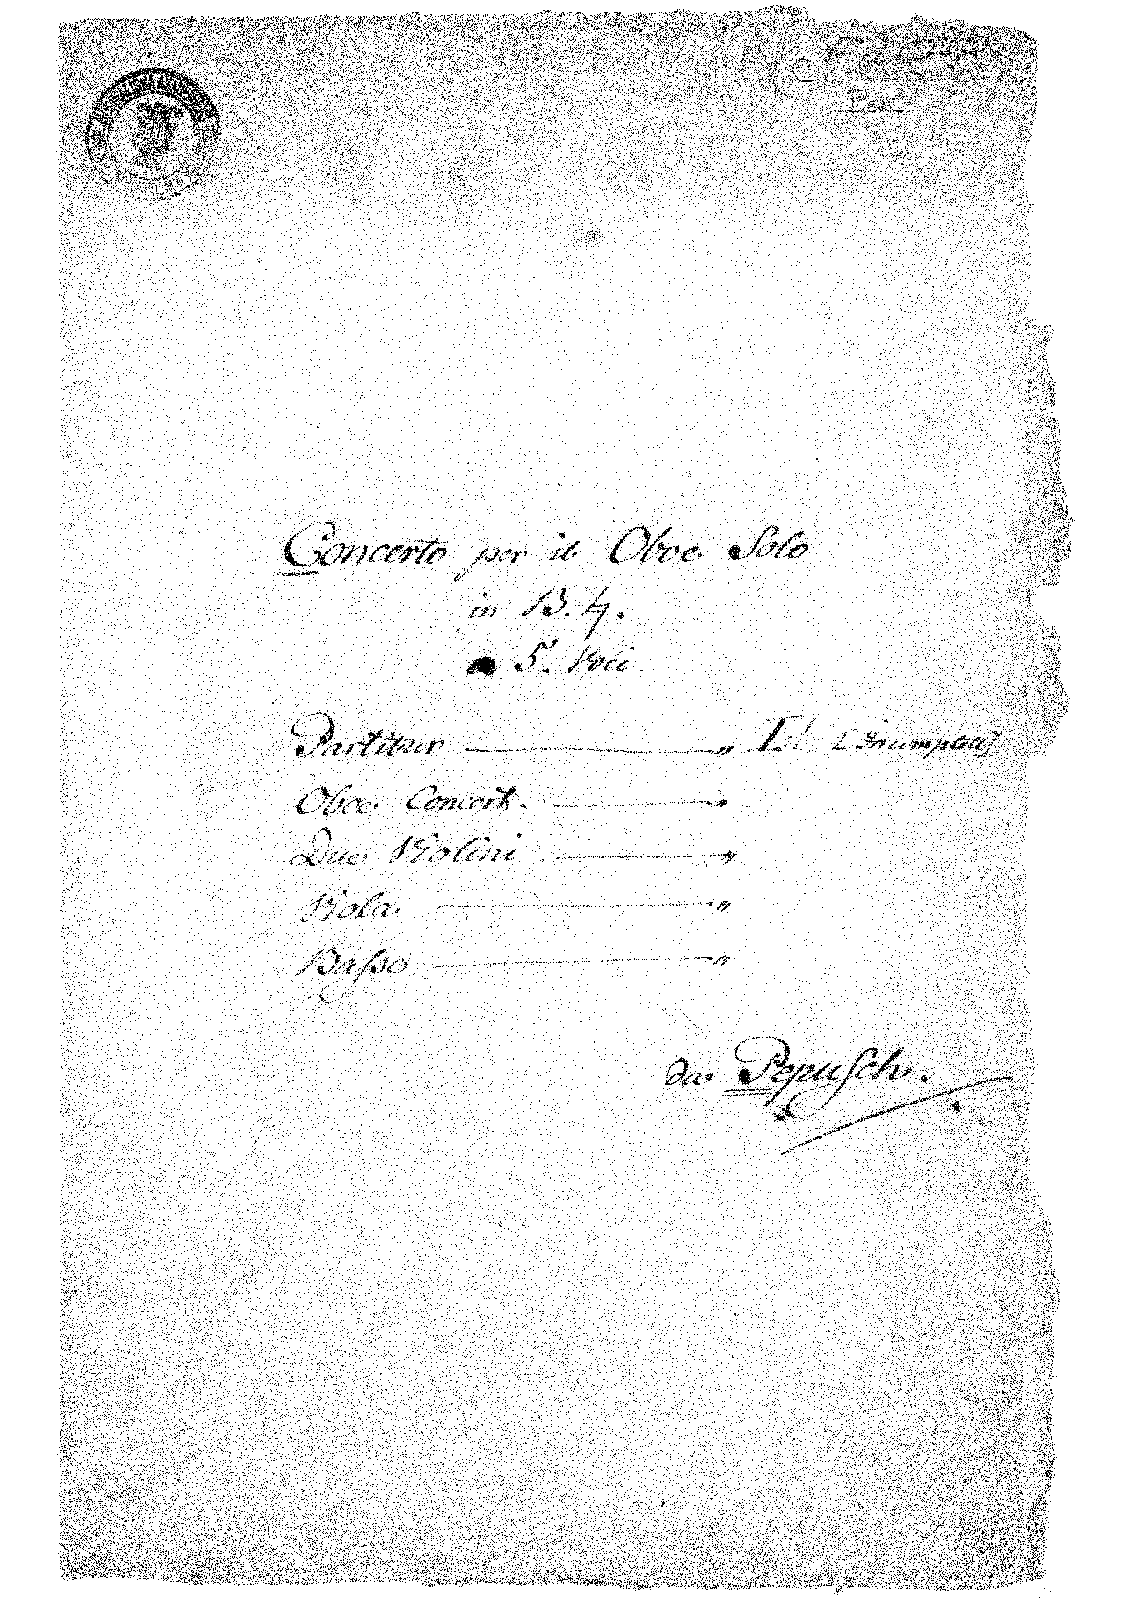 Concerto per il Oboe Solo
in B. 4.
a 5. Voci
Partitur
Oboe Concert.
Due Violini
Viola.
Basso
Pepusch.